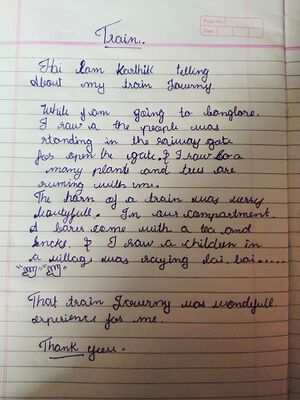 Page No:
Date
Train..
Hai I am Karthik telling
About my train Journy
While I am going to banglore.
I saw a the people was
standing in the raiway gate
for open the gate. & I saw so a
many plants and trees are
runing with me.
The horn of a train was verry
beautyfull. In our compartment
A barer came with a tea and
sncks. & I saw a children in
a village was saying bai.. bai.....
That train Journy was wondefull
experience for me.
Thank you.